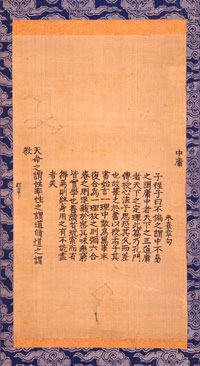 中庸
朱熹章句
子程子曰不偏之謂中不易
之謂庸中者天下之正道庸
者天下之定理此篇乃孔門
傳授心法子思恐其久而差
也故筆之於書以授孟子其
書始言一理中散為萬事末
復合為一理放之則彌六合
卷之則退藏於密其味無窮
皆實學也善讀者玩索而有
得焉則終身用之有不能盡
者矣
天命之謂性率性之謂道脩道之謂
教